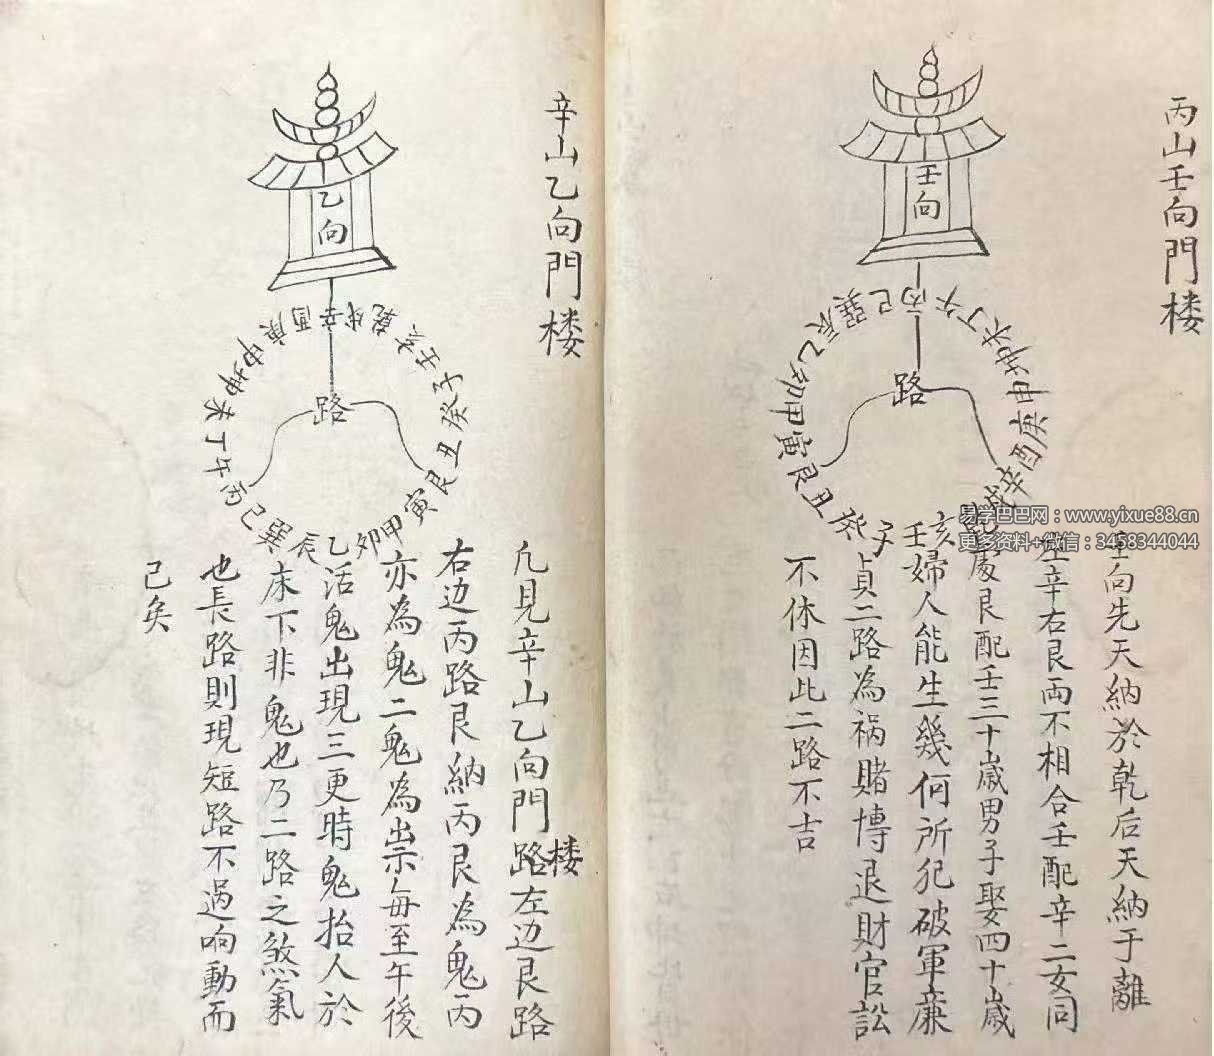 丙山壬向門楼
壬向
丙午丁未坤申庚酉辛戌乾亥壬子癸丑艮寅甲卯乙辰巽巳
路
壬向先天納於乾后天納于離
左辛右艮両不相合壬配辛二女同
處艮配壬三十歲男子娶四十歲
婦人能生幾何所犯破軍廉
貞二路為禍賭博退財官訟
不休因此二路不吉
辛山乙向門楼
乙向
辛戌乾亥壬子癸丑艮寅甲卯乙辰巽巳丙午丁未坤申庚酉
路
凢見辛山乙向門楼路左边艮路
右边丙路艮納丙艮為鬼丙
亦為鬼二鬼為祟每至午後
活鬼出現三更時鬼抬人於
床下非鬼也乃二路之煞氣
也長路則現短路不過响動而
已矣
易学巴巴网：www.yixue88.cn
更多资料+微信：3458344044